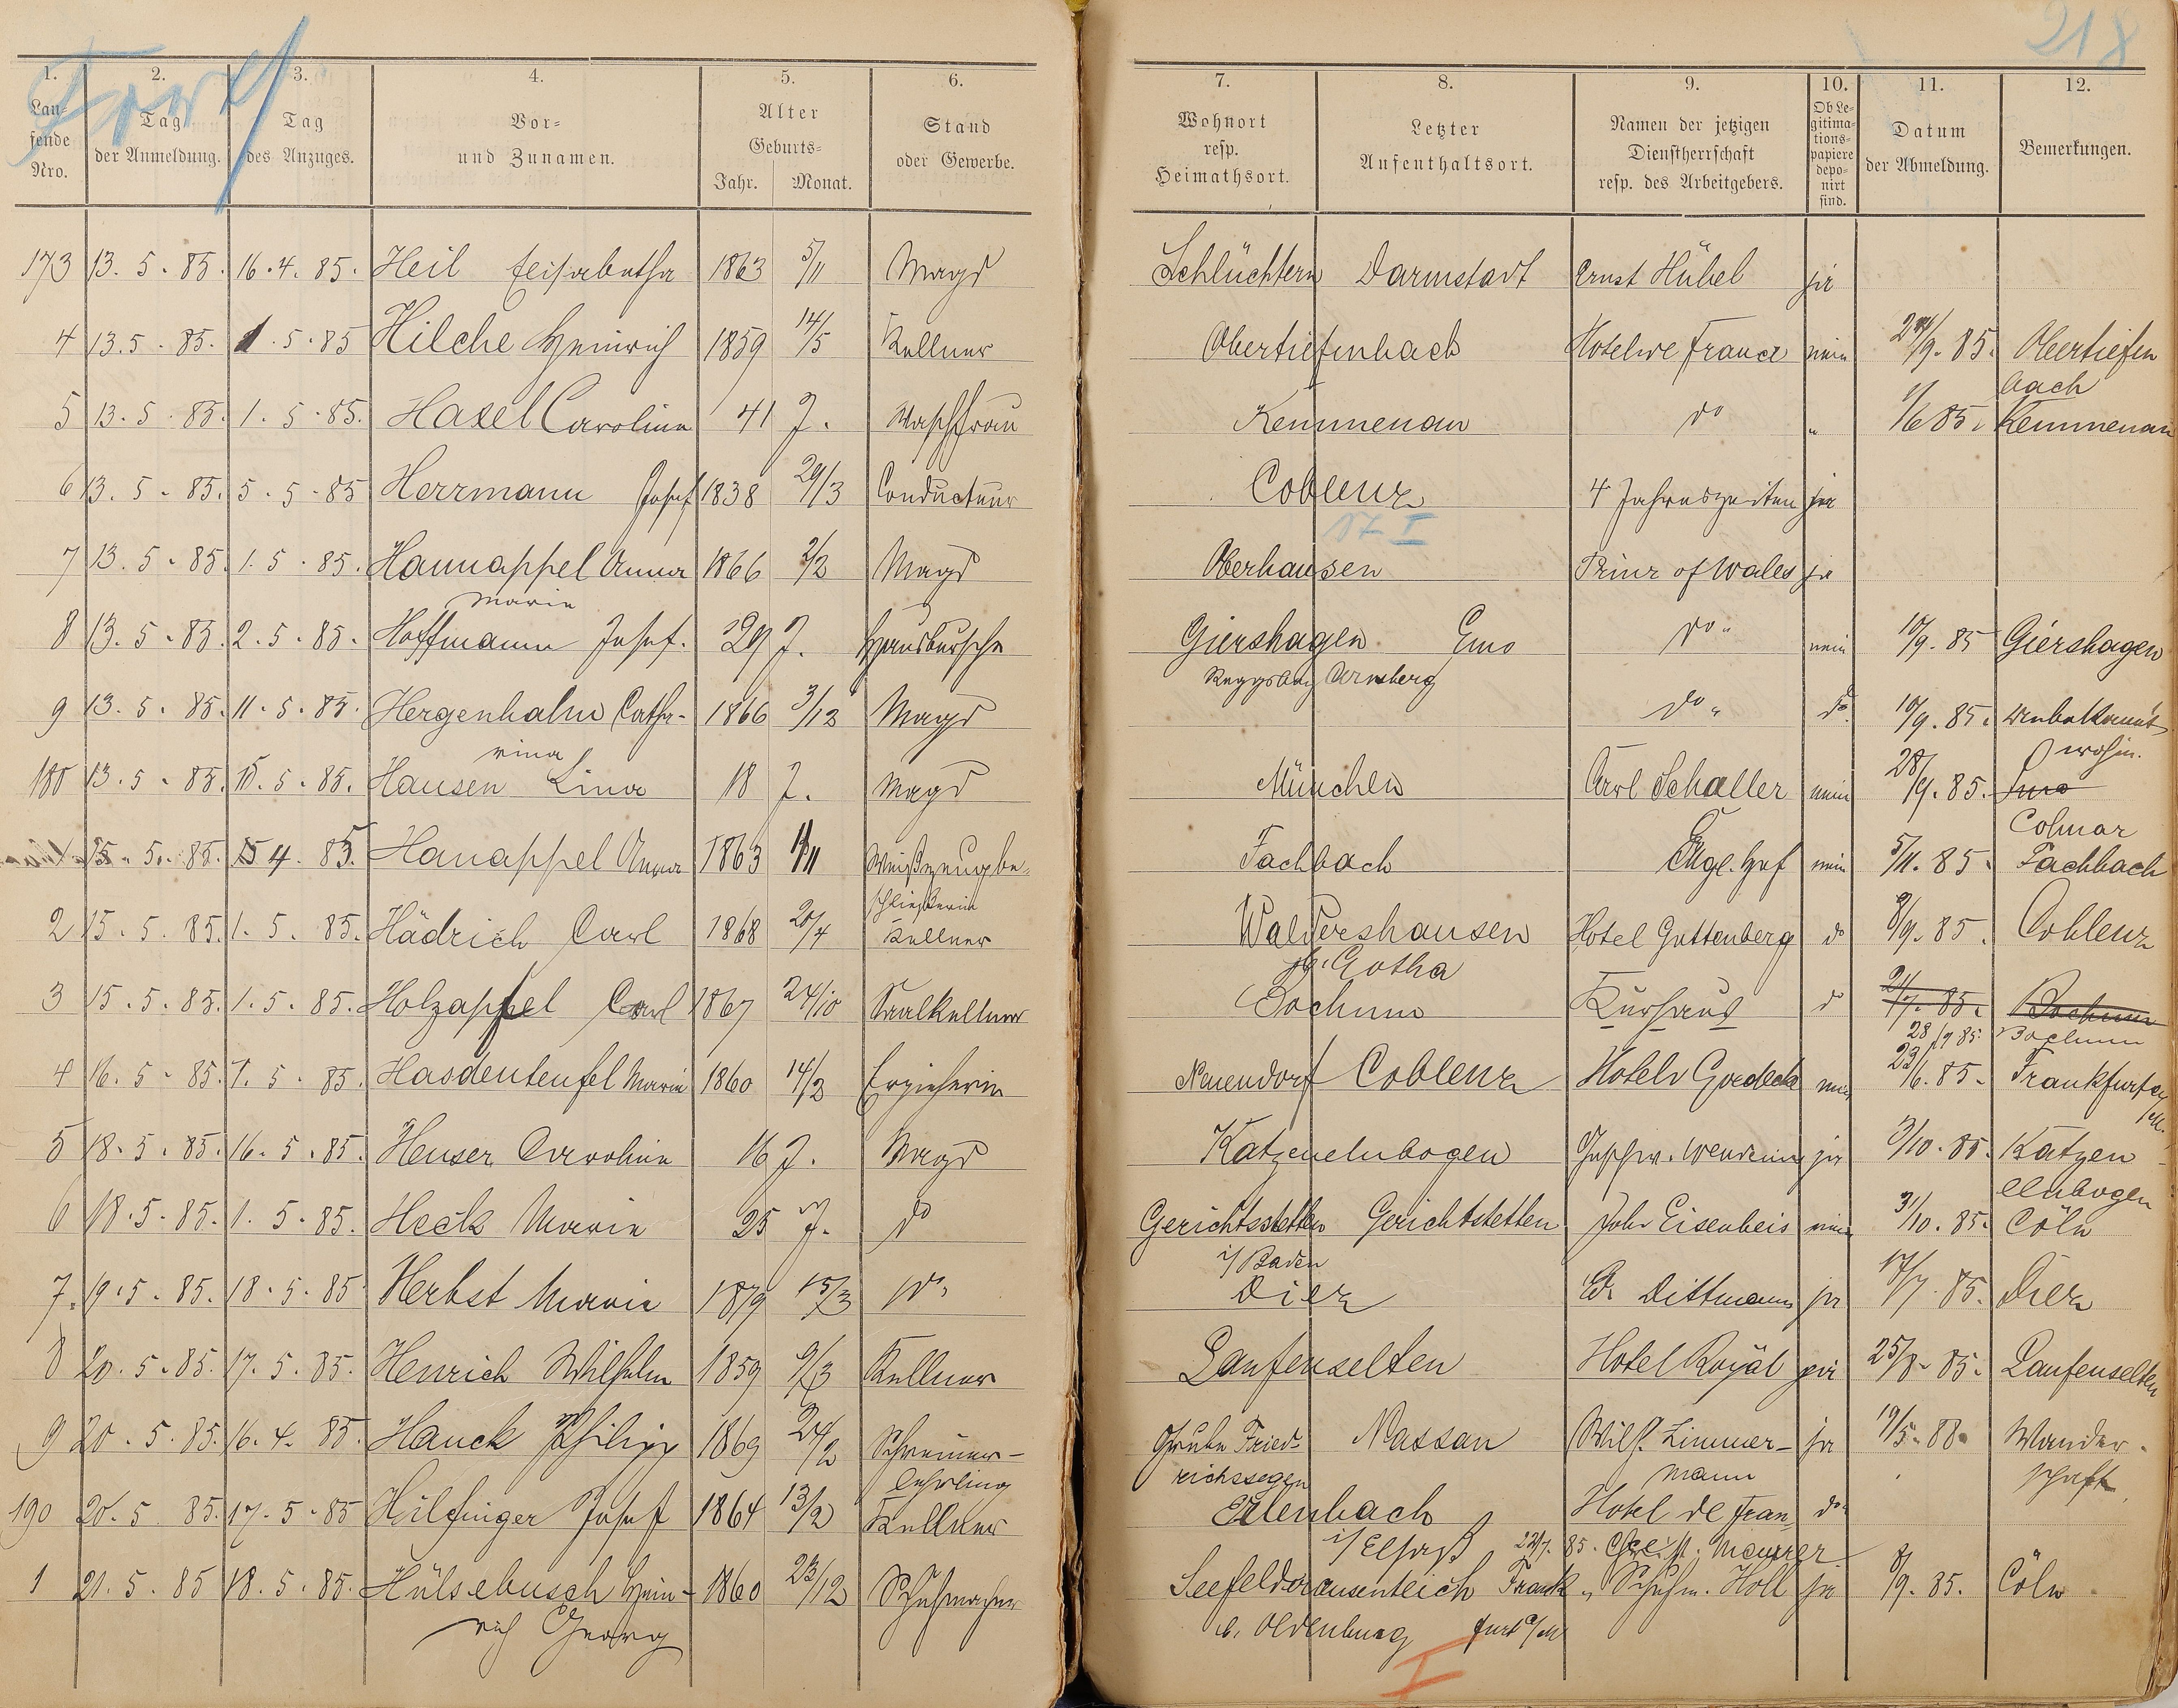 218
Fort
1. 2. 3. 4. 5. 6. 7. 8. 9. 10. 11. 12.
Lau-
fende
Nro.
Tag
der Anmeldung.
Tag
des Anzuges.
Vor-
und Zunamen.
Alter
Geburts-
Jahr. Monat.
Stand
oder Gewerbe.
Wohnort
resp.
Heimathsort.
Letzter
Aufenthaltsort.
Namen der jetzigen
Dienstherrschaft
resp. des Arbeitgebers.
Ob Le-
gitima-
tions-
papiere
depo-
nirt
sind.
Datum
der Abmeldung.
Bemerkungen.
173 13. 5. 85. 16. 4. 85. Heil Elisabetha 1863 5/11 Magd Schlüchtern Darmstadt Ernst Hübel ja
4 13. 5. 85. 1. 5. 85 Hilche Heinrich 1859 14/5 Kellner Obertiefenbach Hotel de France nein /9. 85. Obertiefen
bach
5 13. 5. 85. 1. 5. 85. Hasel Carolina 41 J. Waschfrau Kemmenau do " 1/6 85. Kemmenau
6 13. 5. 85. 5. 5. 85 Herrmann Josef 1838 29/3 Conducteur Coblenz 4 Jahreszeiten ja
17 I
7 13. 5. 85. 1. 5. 85. Hannappel Anna 1866 2/2 Magd Oberhausen Prinz of Wales ja
Maria
8 13. 5. 85. 2. 5. 85. Hoffmann Josef. 29 J. Hausbursche Giershagen Ems do " nein 10/9. 85 Giershagen
Reggsbez Arnsberg
9 13. 5. 85. 11. 5. 85. Hergenhahn Catha- 1866 3/12 Magd do " do 10/9. 85. unbekannt
rina wohin.
180 13. 5. 85. 11. 5. 85. Hausen Lina 18 J. Magd München Carl Schaller nein 28/9. 85. Ems
Colmar
1 15. 5. 85. 15 4. 85. Hanappel Anna 1863 /11 Weißzeugbe- Fachbach Engl. Hof nein 5/11. 85. Fachbach
schließerin
2 15. 5. 85. 1. 5. 85. Hädrich Carl 1868 20/4 Kellner Waldershausen Hotel Guttenberg do 8/9. 85. Coblenz
Gotha
3 15. 5. 85. 1. 5. 85. Holzapfel Carl 1867 24/10 Saalkellner Bochum Kurhaus do 21/7. 85. Bochum
28/9 85. Bochum
4 16. 5. 85. 7. 5. 85. Hasdenteufel Maria 1860 14/2 Erzieherin Neuendorf Coblenz Hotel Goedecke nein 23/6. 85. Frankfurt a/
M.
5 18. 5. 85. 16. 5. 85. Heuser Carolina 16 J. Magd Katzenelnbogen Geschw. ja 3/10. 85. Katzen-
ellnbogen
6 18. 5. 85. 1. 5. 85. Heck Maria 25 J. do Gerichtsstetten Gerichtstetten Joh Eisenbeis nein 31/10. 85. Cöln
i/ Baden
7. 19. 5. 85. 18. 5. 85. Herbst Maria 1879 15/3 do Diez Ed. Dittmann ja 17/7. 85. Diez
8 20. 5. 85. 17. 5. 85. Henrich Wilhelm 1859 9/3 Kellner Laufenselten Hotel Royal ja 25/8. 85. Laufenselten
9 20. 5. 85. 16. 4. 85. Hauck Philipp 1869 24/2 Schreiner- Grube Fried- Nassau Wilh. Zimmer- ja 19/5. 88. Wander-
lehrling richssegen mann schaft
190 20. 5. 85. 17. 5. 85 Hilfinger Josef 1864 13/2 Kellner Erlenbach Hotel de Fran- do
i/ Elsaß 22/7. 85. Christ. Meurer
1 21. 5. 85 18. 5. 85. Hülsebusch Hein- 1860 23/12 Schuhmacher Seefelderaussenteich Frank- Schuhm. Holl ja 8/9. 85. Cöln
rich Georg b. Oldenburg furt a/M
I